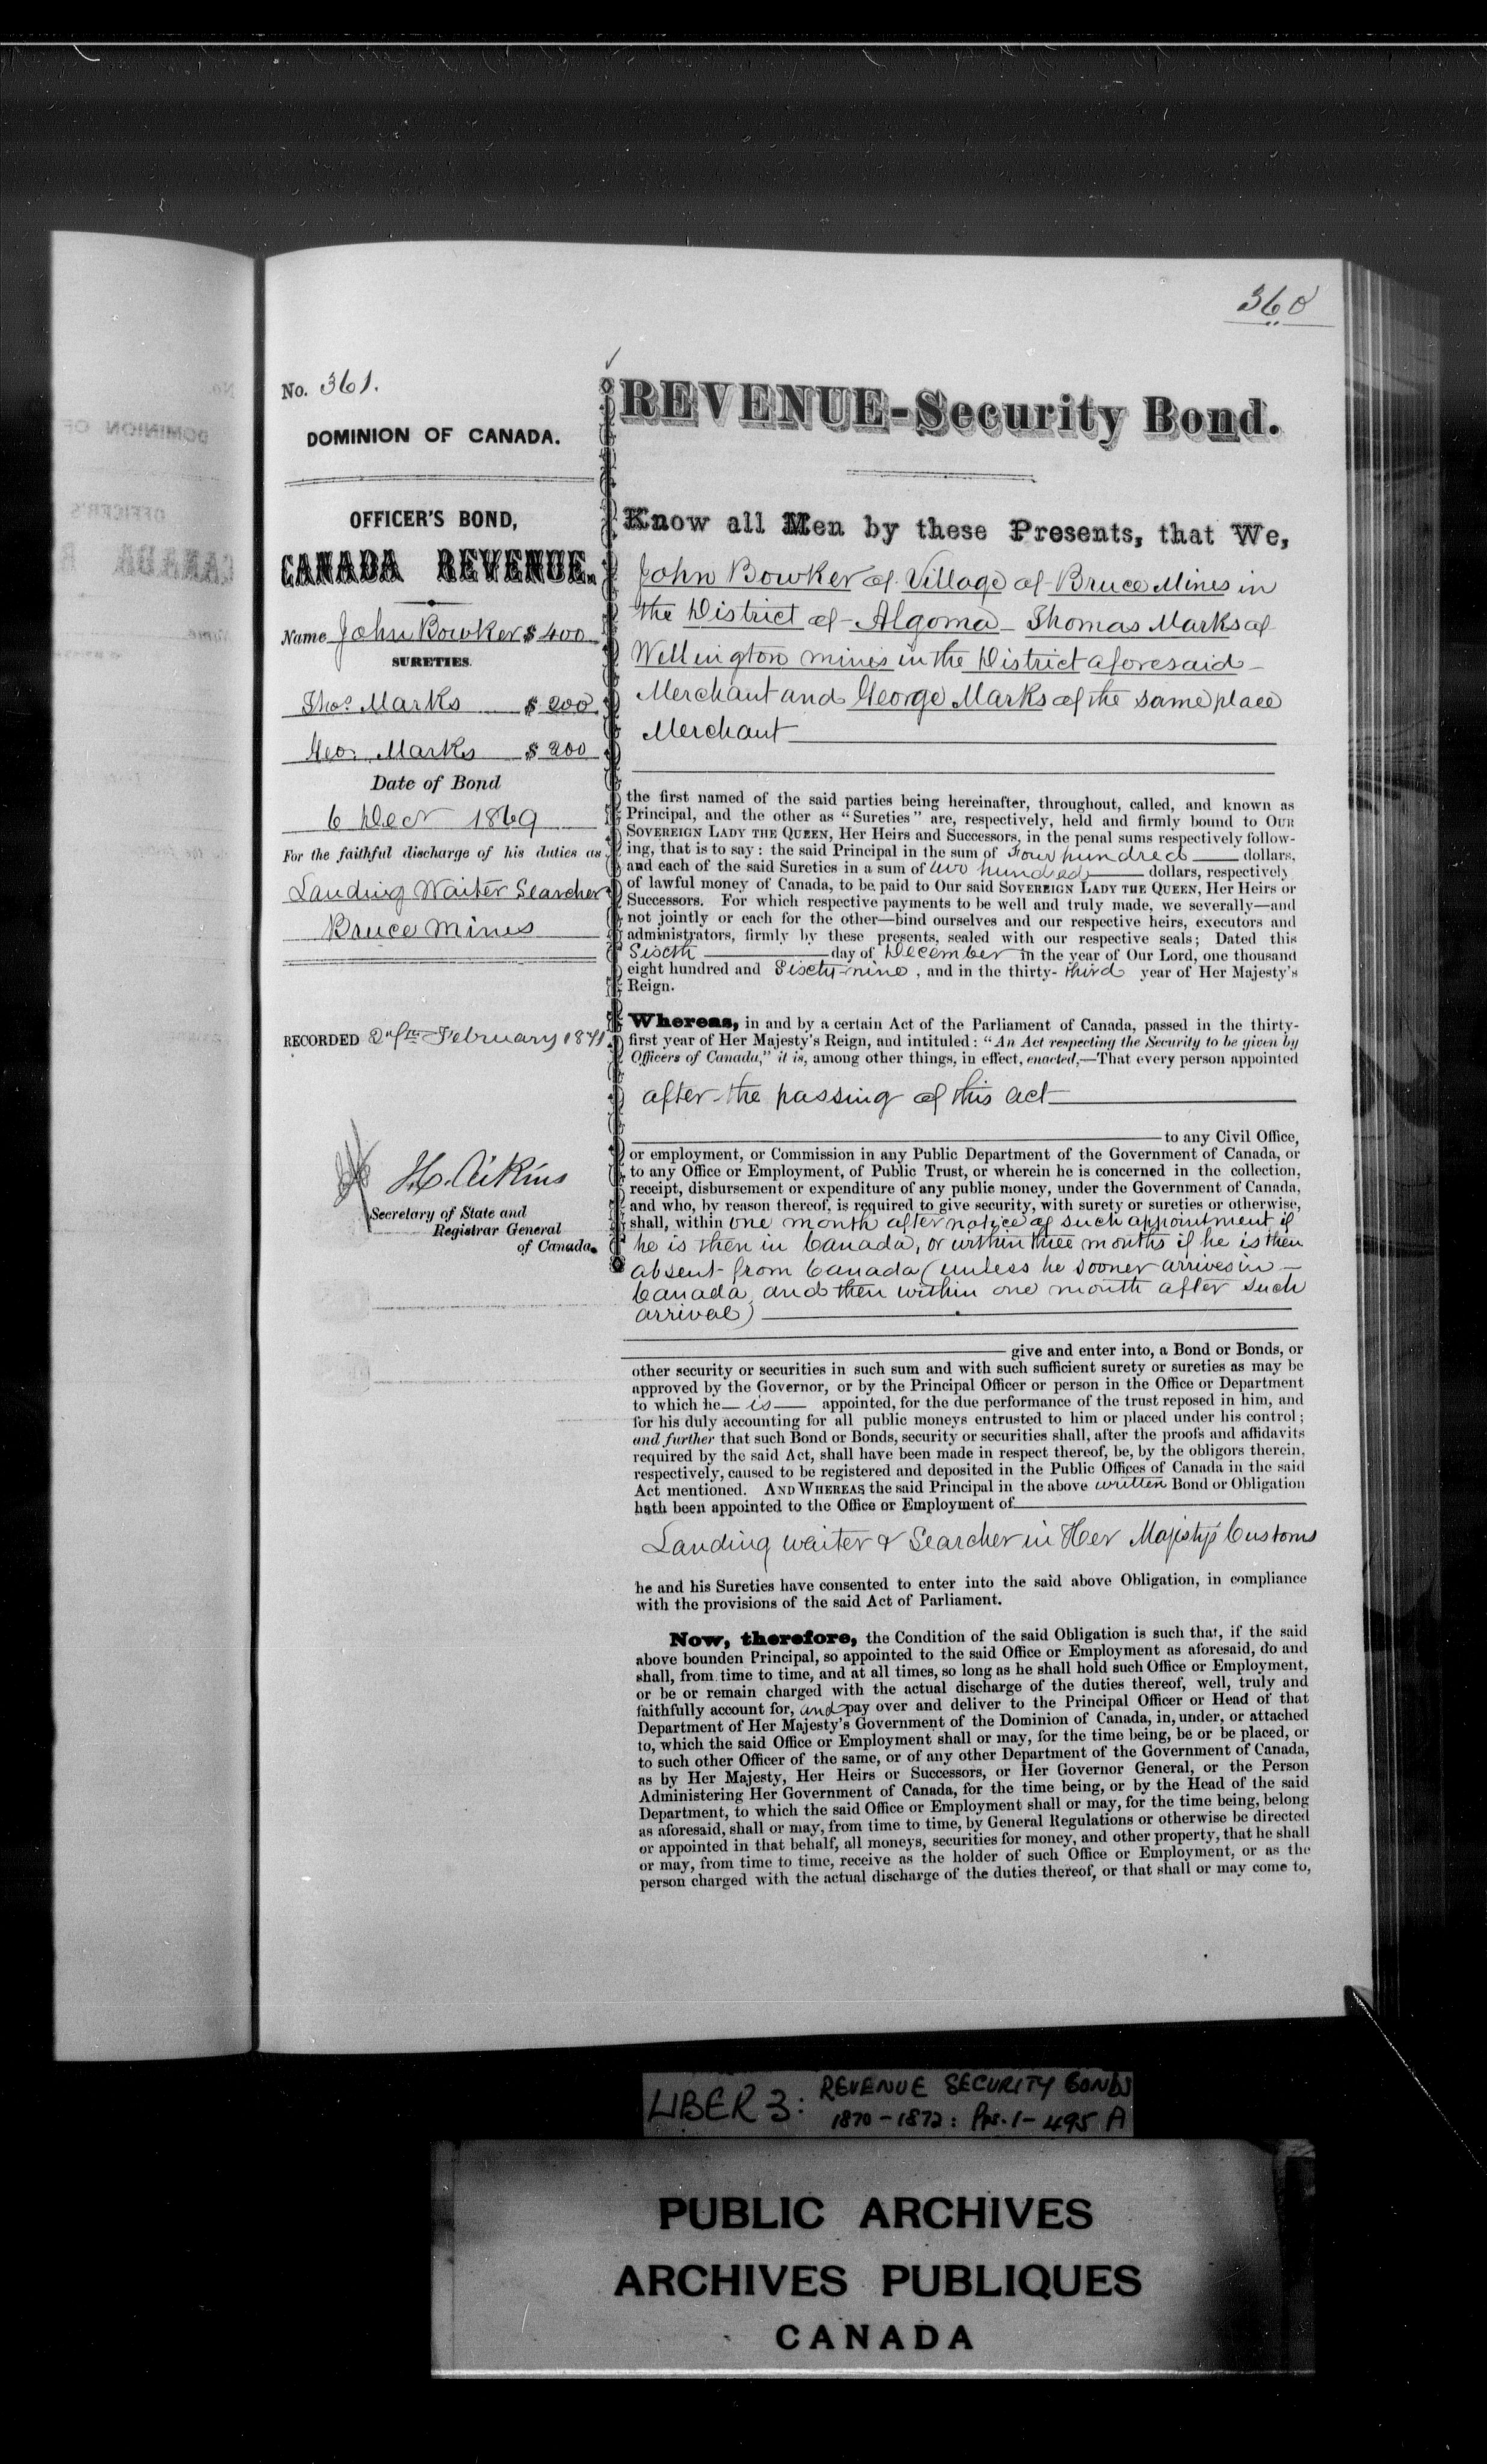 360
No. 361.
DOMINION OF CANADA.
OFFICER'S BOND,
CANADA REVENUE.
Name John Bowker $ 400
SURETIES.
Thos. Marks $ 200
Geo. Marks $ 200
Date of Bond
6 Decr 1869
For the faithful discharge of his duties as
Landing Waiter Searcher
Bruce Mines
RECORDED February 1871
J.C. Aikins
Secretary of State and
Registrar General
of Canada.
REVENUE-Security Bond.
Know all Men by these Presents, that We,
John Bowker of Village of Bruce Mines in
the District of Algoma Thomas Marks of
Wellington mines in the District aforesaid
Merchant and George Marks of the same place
Merchant
the first named of the said parties being hereinafter, throughout, called, and known as
Principal, and the other as "Sureties" are, respectively, held and firmly bound to OUR
SOVEREIGN LADY THE QUEEN, Her Heirs and Successors, in the penal sums respectively follow-
ing, that is to say: the said Principal in the sum of Four hundred dollars,
and each of the said Sureties in a sum of two hundred dollars, respectively
of lawful money of Canada, to be paid to Our said SOVEREIGN LADY THE QUEEN, Her Heirs or
Successors. For which respective payments to be well and truly made, we severally—and
not jointly or each for the other—bind ourselves and our respective heirs, executors and
administrators, firmly by these presents, sealed with our respective seals; Dated this
Sixth day of December in the year of Our Lord, one thousand
eight hundred and Sixty-nine, and in the thirty-third year of Her Majesty's
Reign.
Whereas, in and by a certain Act of the Parliament of Canada, passed in the thirty-
first year of Her Majesty's Reign, and intituled: "An Act respecting the Security to be given by
Officers of Canada," it is, among other things, in effect, enacted,—That every person appointed
after the passing of this act
to any Civil Office,
or employment, or Commission in any Public Department of the Government of Canada, or
to any Office or Employment, of Public Trust, or wherein he is concerned in the collection,
receipt, disbursement or expenditure of any public money, under the Government of Canada,
and who, by reason thereof, is required to give security, with surety or sureties or otherwise,
shall, within one month after notice of such appointment if
he is then in Canada, or within three months if he is then
absent from Canada (unless he sooner arrives in
Canada, and then within one month after such
arrival)
give and enter into, a Bond or Bonds, or
other security or securities in such sum and with such sufficient surety or sureties as may be
approved by the Governor, or by the Principal Officer or person in the Office or Department
to which he is appointed, for the due performance of the trust reposed in him, and
for his duly accounting for all public moneys entrusted to him or placed under his control;
and further that such Bond or Bonds, security or securities shall, after the proofs and affidavits
required by the said Act, shall have been made in respect thereof, be, by the obligors therein,
respectively, caused to be registered and deposited in the Public Offices of Canada in the said
Act mentioned. AND WHEREAS the said Principal in the above written Bond or Obligation
hath been appointed to the Office or Employment of
Landing waiter & Searcher in Her Majesty's Customs
he and his Sureties have consented to enter into the said above Obligation, in compliance
with the provisions of the said Act of Parliament.
Now, therefore, the Condition of the said Obligation is such that, if the said
above bounden Principal, so appointed to the said Office or Employment as aforesaid, do and
shall, from time to time, and at all times, so long as he shall hold such Office or Employment,
or be or remain charged with the actual discharge of the duties thereof, well, truly and
faithfully account for, and pay over and deliver to the Principal Officer or Head of that
Department of Her Majesty's Government of the Dominion of Canada, in, under, or attached
to, which the said Office or Employment shall or may, for the time being, be or be placed, or
to such other Officer of the same, or of any other Department of the Government of Canada,
as by Her Majesty, Her Heirs or Successors, or Her Governor General, or the Person
Administering Her Government of Canada, for the time being, or by the Head of the said
Department, to which the said Office or Employment shall or may, for the time being, belong
as aforesaid, shall or may, from time to time, by General Regulations or otherwise be directed
or appointed in that behalf, all moneys, securities for money, and other property, that he shall
or may, from time to time, receive as the holder of such Office or Employment, or as the
person charged with the actual discharge of the duties thereof, or that shall or may come to,
LIBER 3: REVENUE SECURITY BONDS
1870-1872: Pps. 1-495 A
PUBLIC ARCHIVES
ARCHIVES PUBLIQUES
CANADA